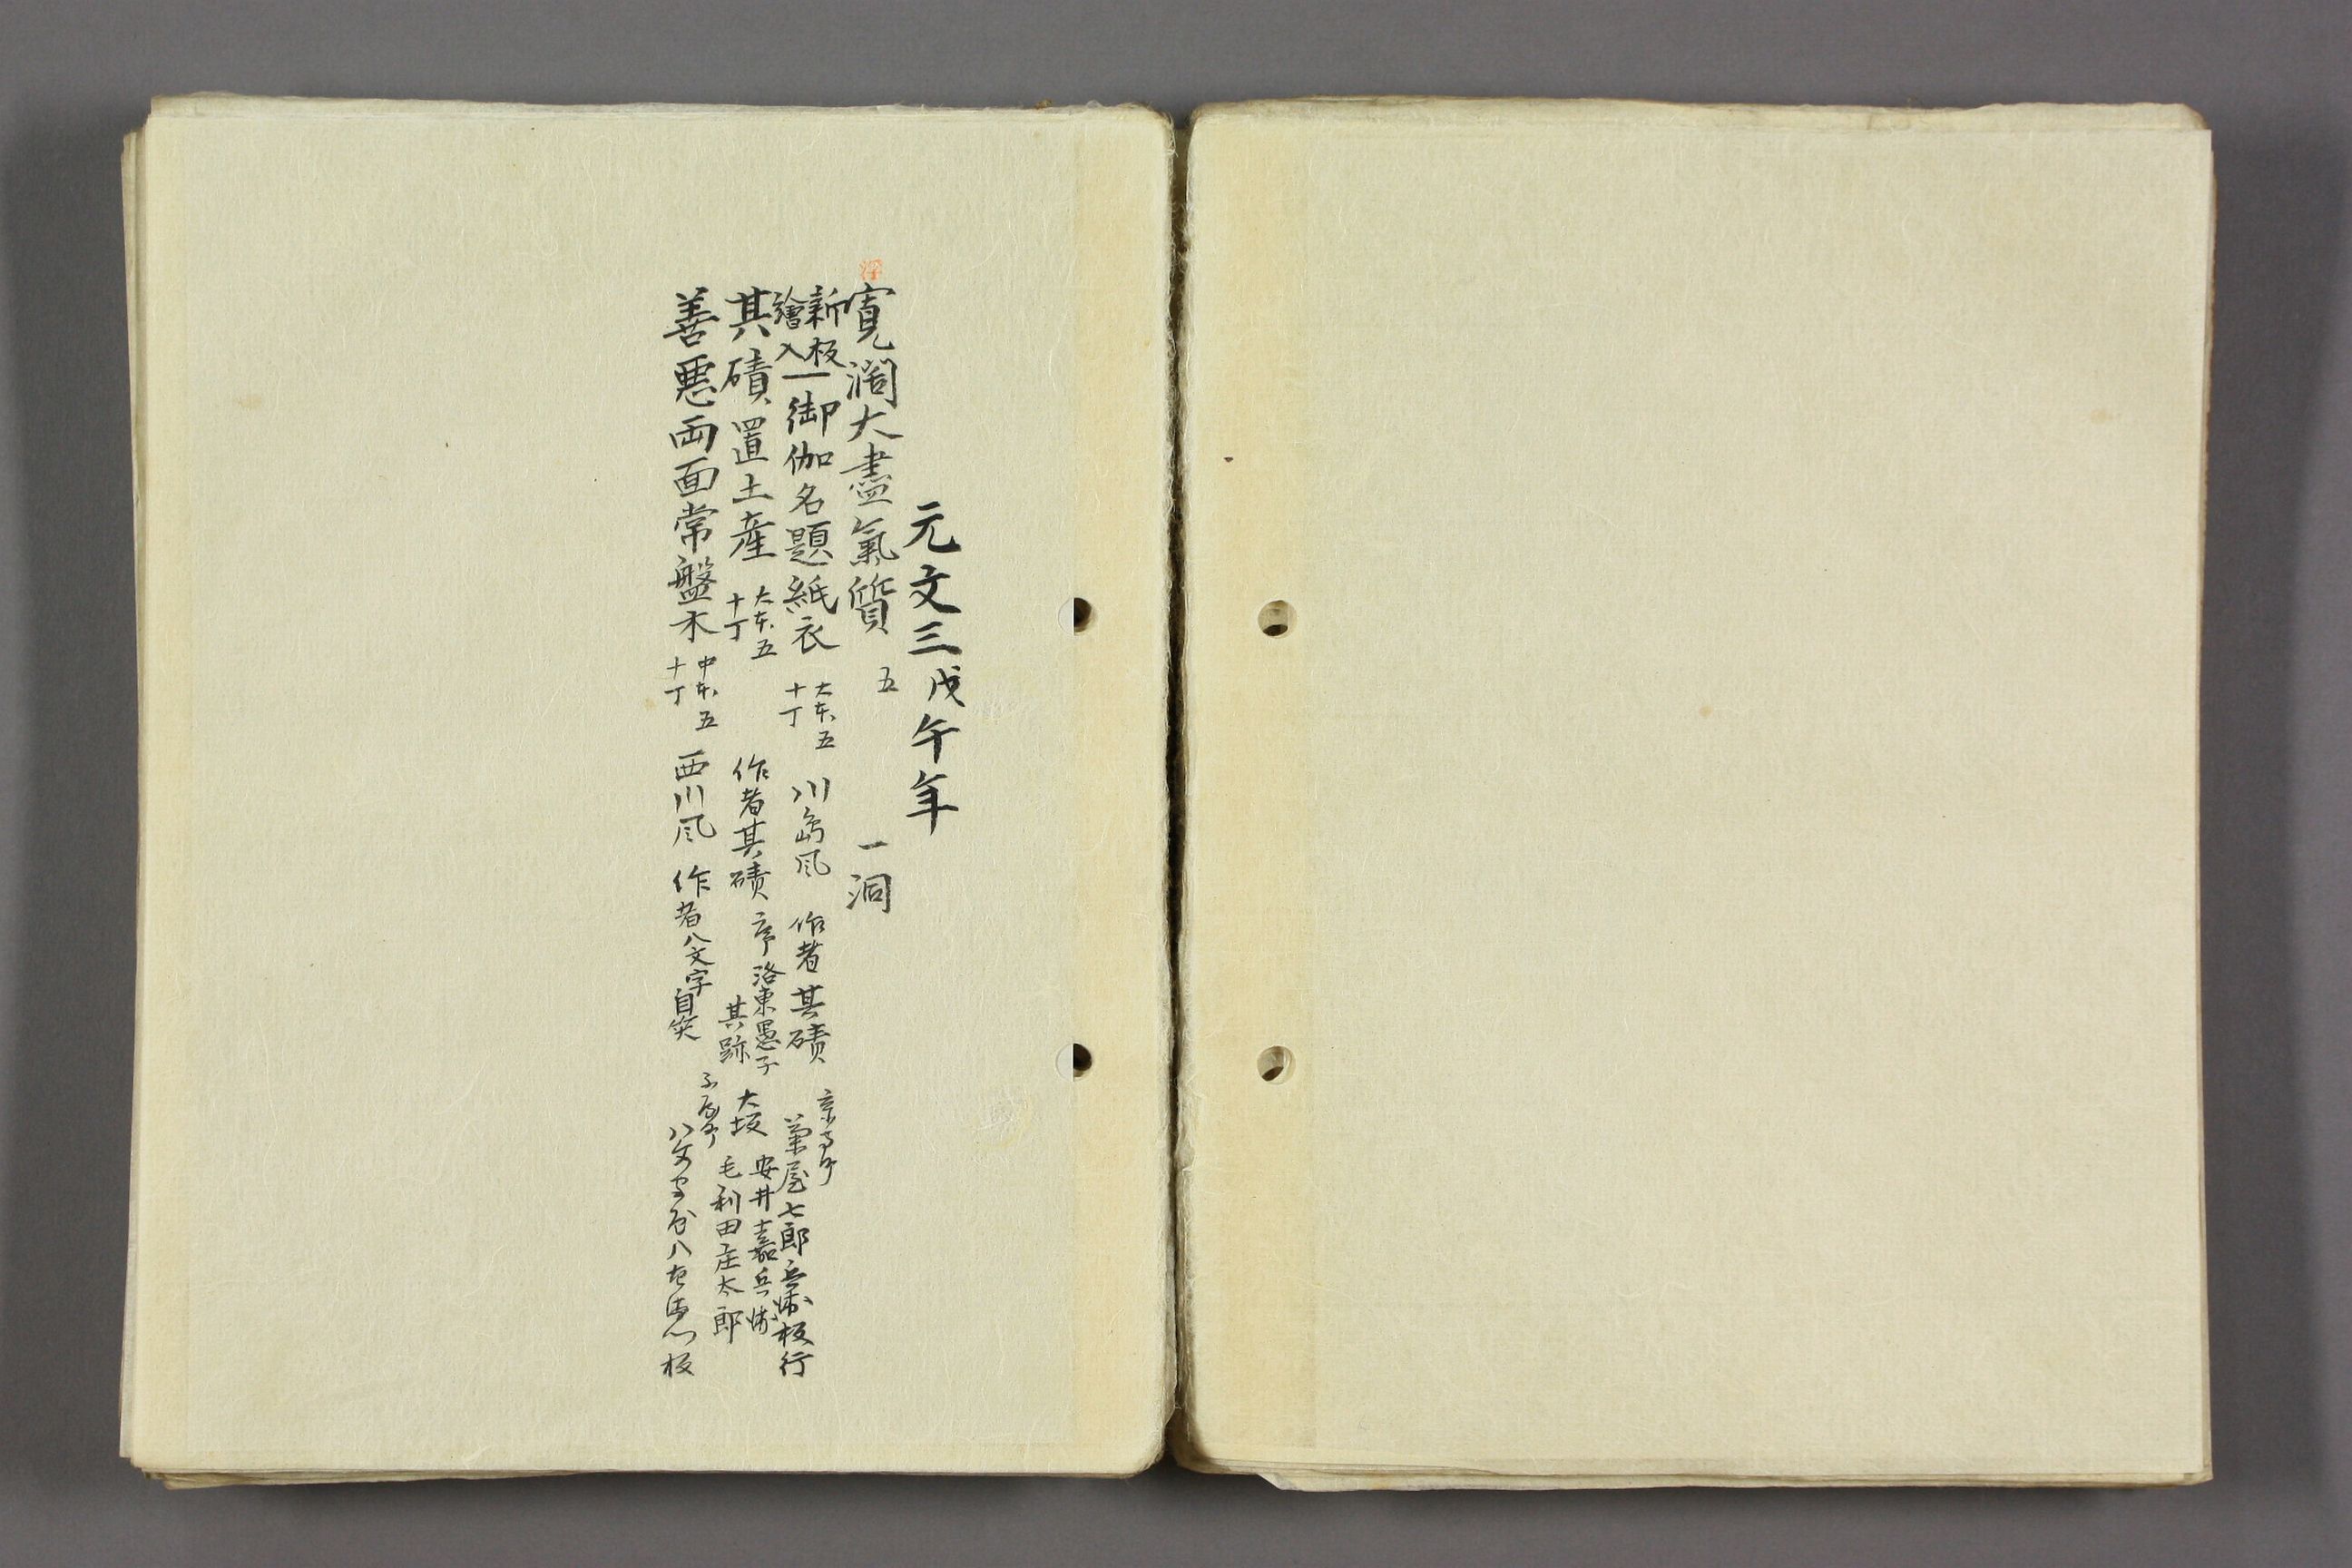 元文三戊午年
寛濶大盡氣質 五 一洞
新板繪入 御伽名題紙衣 大本五 十丁 川島風 作者其磧 京寺町 菊屋七郎兵衛板行
其磧置土産 大本五 十丁 作者其磧 序洛東愚子其跡 大坂 安井嘉兵衛 毛利田庄太郎
善悪両面常盤木 中本五 十丁 西川風 作者八文字自笑 ふや町 八文字屋八左衛門板